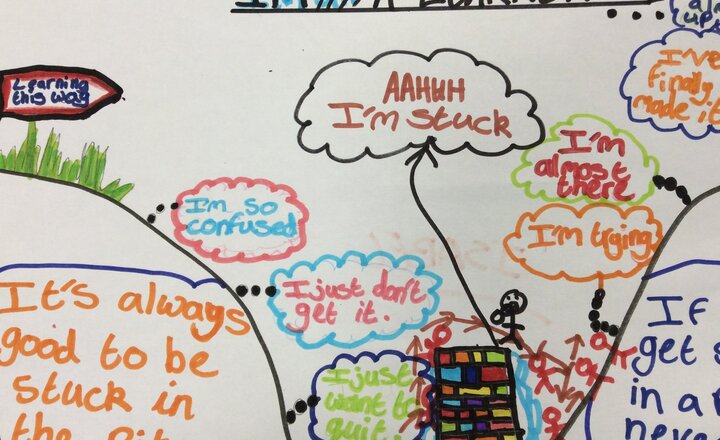 Learning
this way
AAHHH
I'm stuck
I've
finally
made it
I'm
almost
there
I'm so
confused
I'm trying
I just don't
get it.
It's always
good to be
stuck in
the
I just
want to
quit.
If
get
in a
never